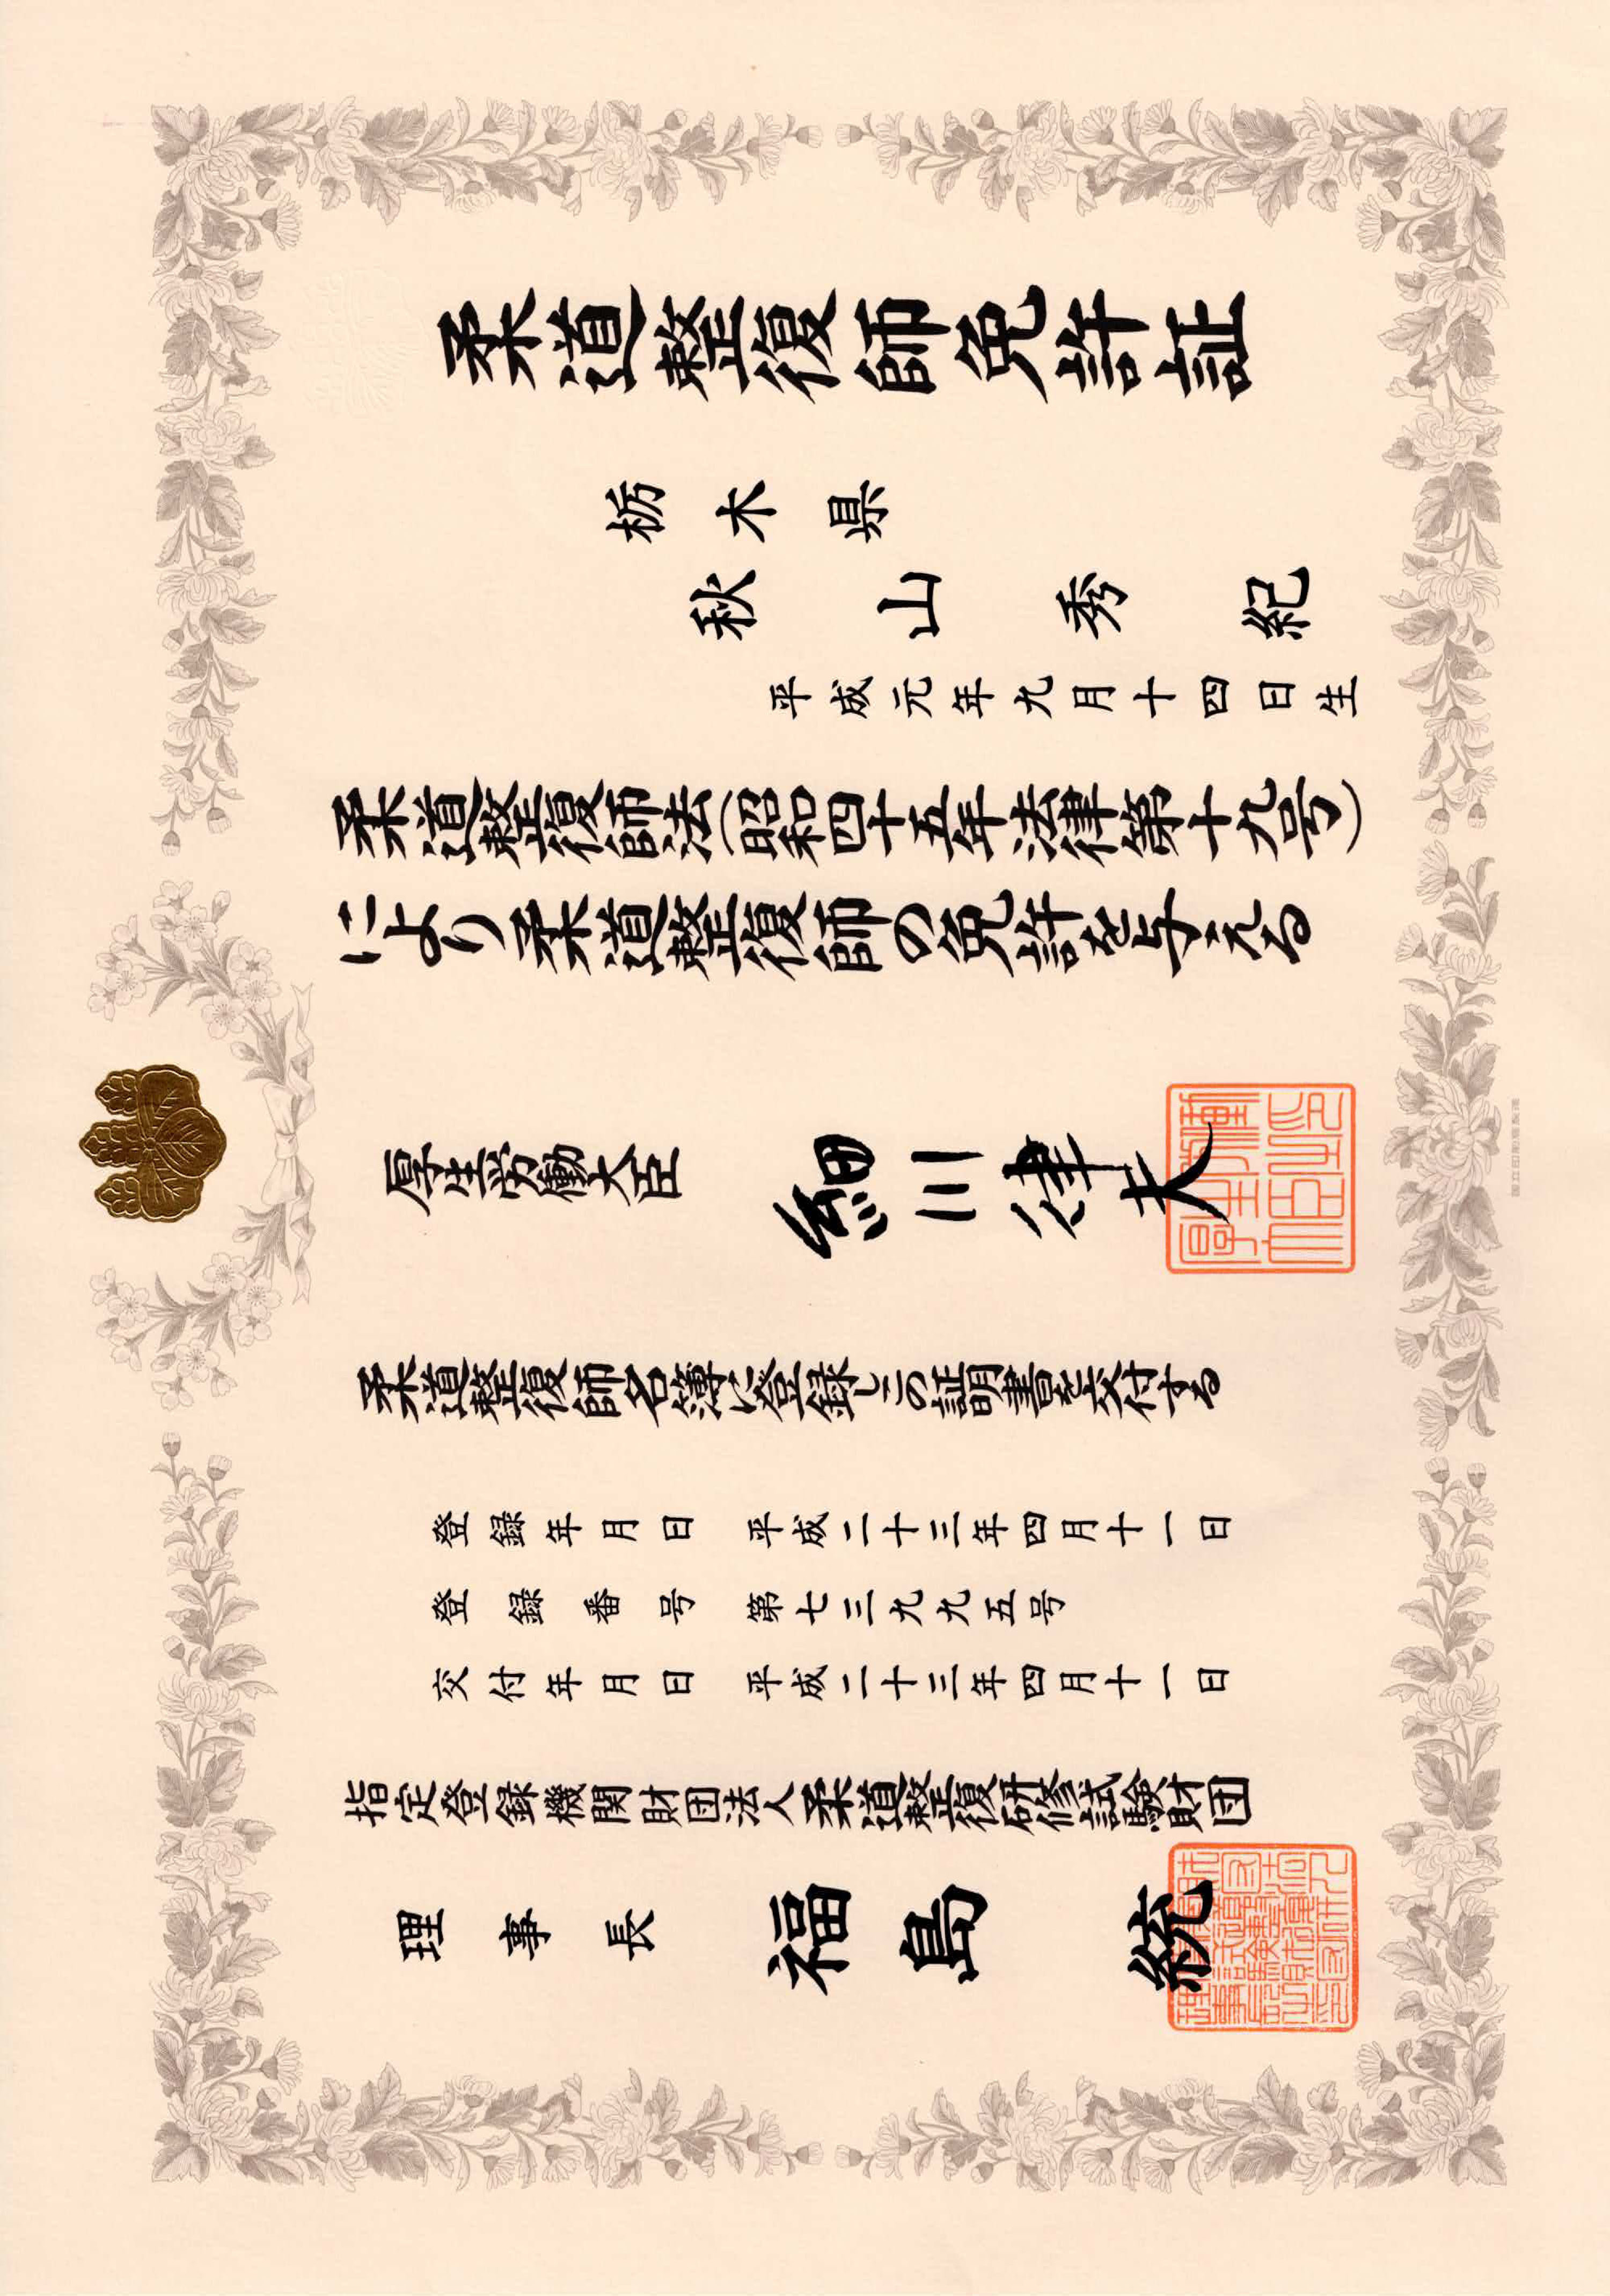 柔道整復師免許証
栃木県
秋山秀紀
平成元年九月十四日生
柔道整復師法(昭和四十五年法律第十九号)
により柔道整復師の免許を与える
厚生労働大臣 細川律夫
厚生労働大臣之印
柔道整復師名簿に登録しこの証明書を交付する
登録年月日 平成二十三年四月十一日
登録番号 第七三九九五号
交付年月日 平成二十三年四月十一日
指定登録機関財団法人柔道整復研修試験財団
理事長 福島統